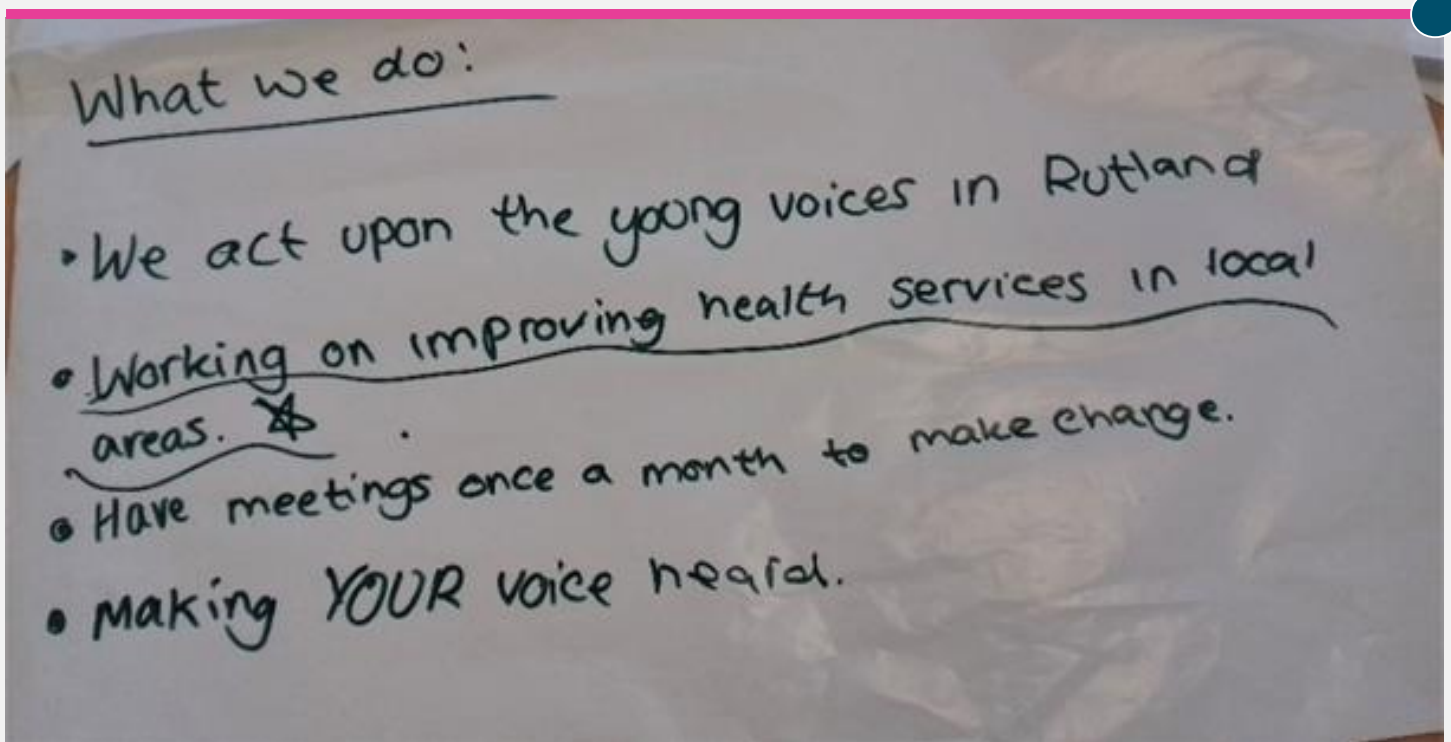 What we do:
• We act upon the young voices in Rutland
• Working on improving health services in local
areas. ☆ .
• Have meetings once a month to make change.
• Making YOUR voice heard.